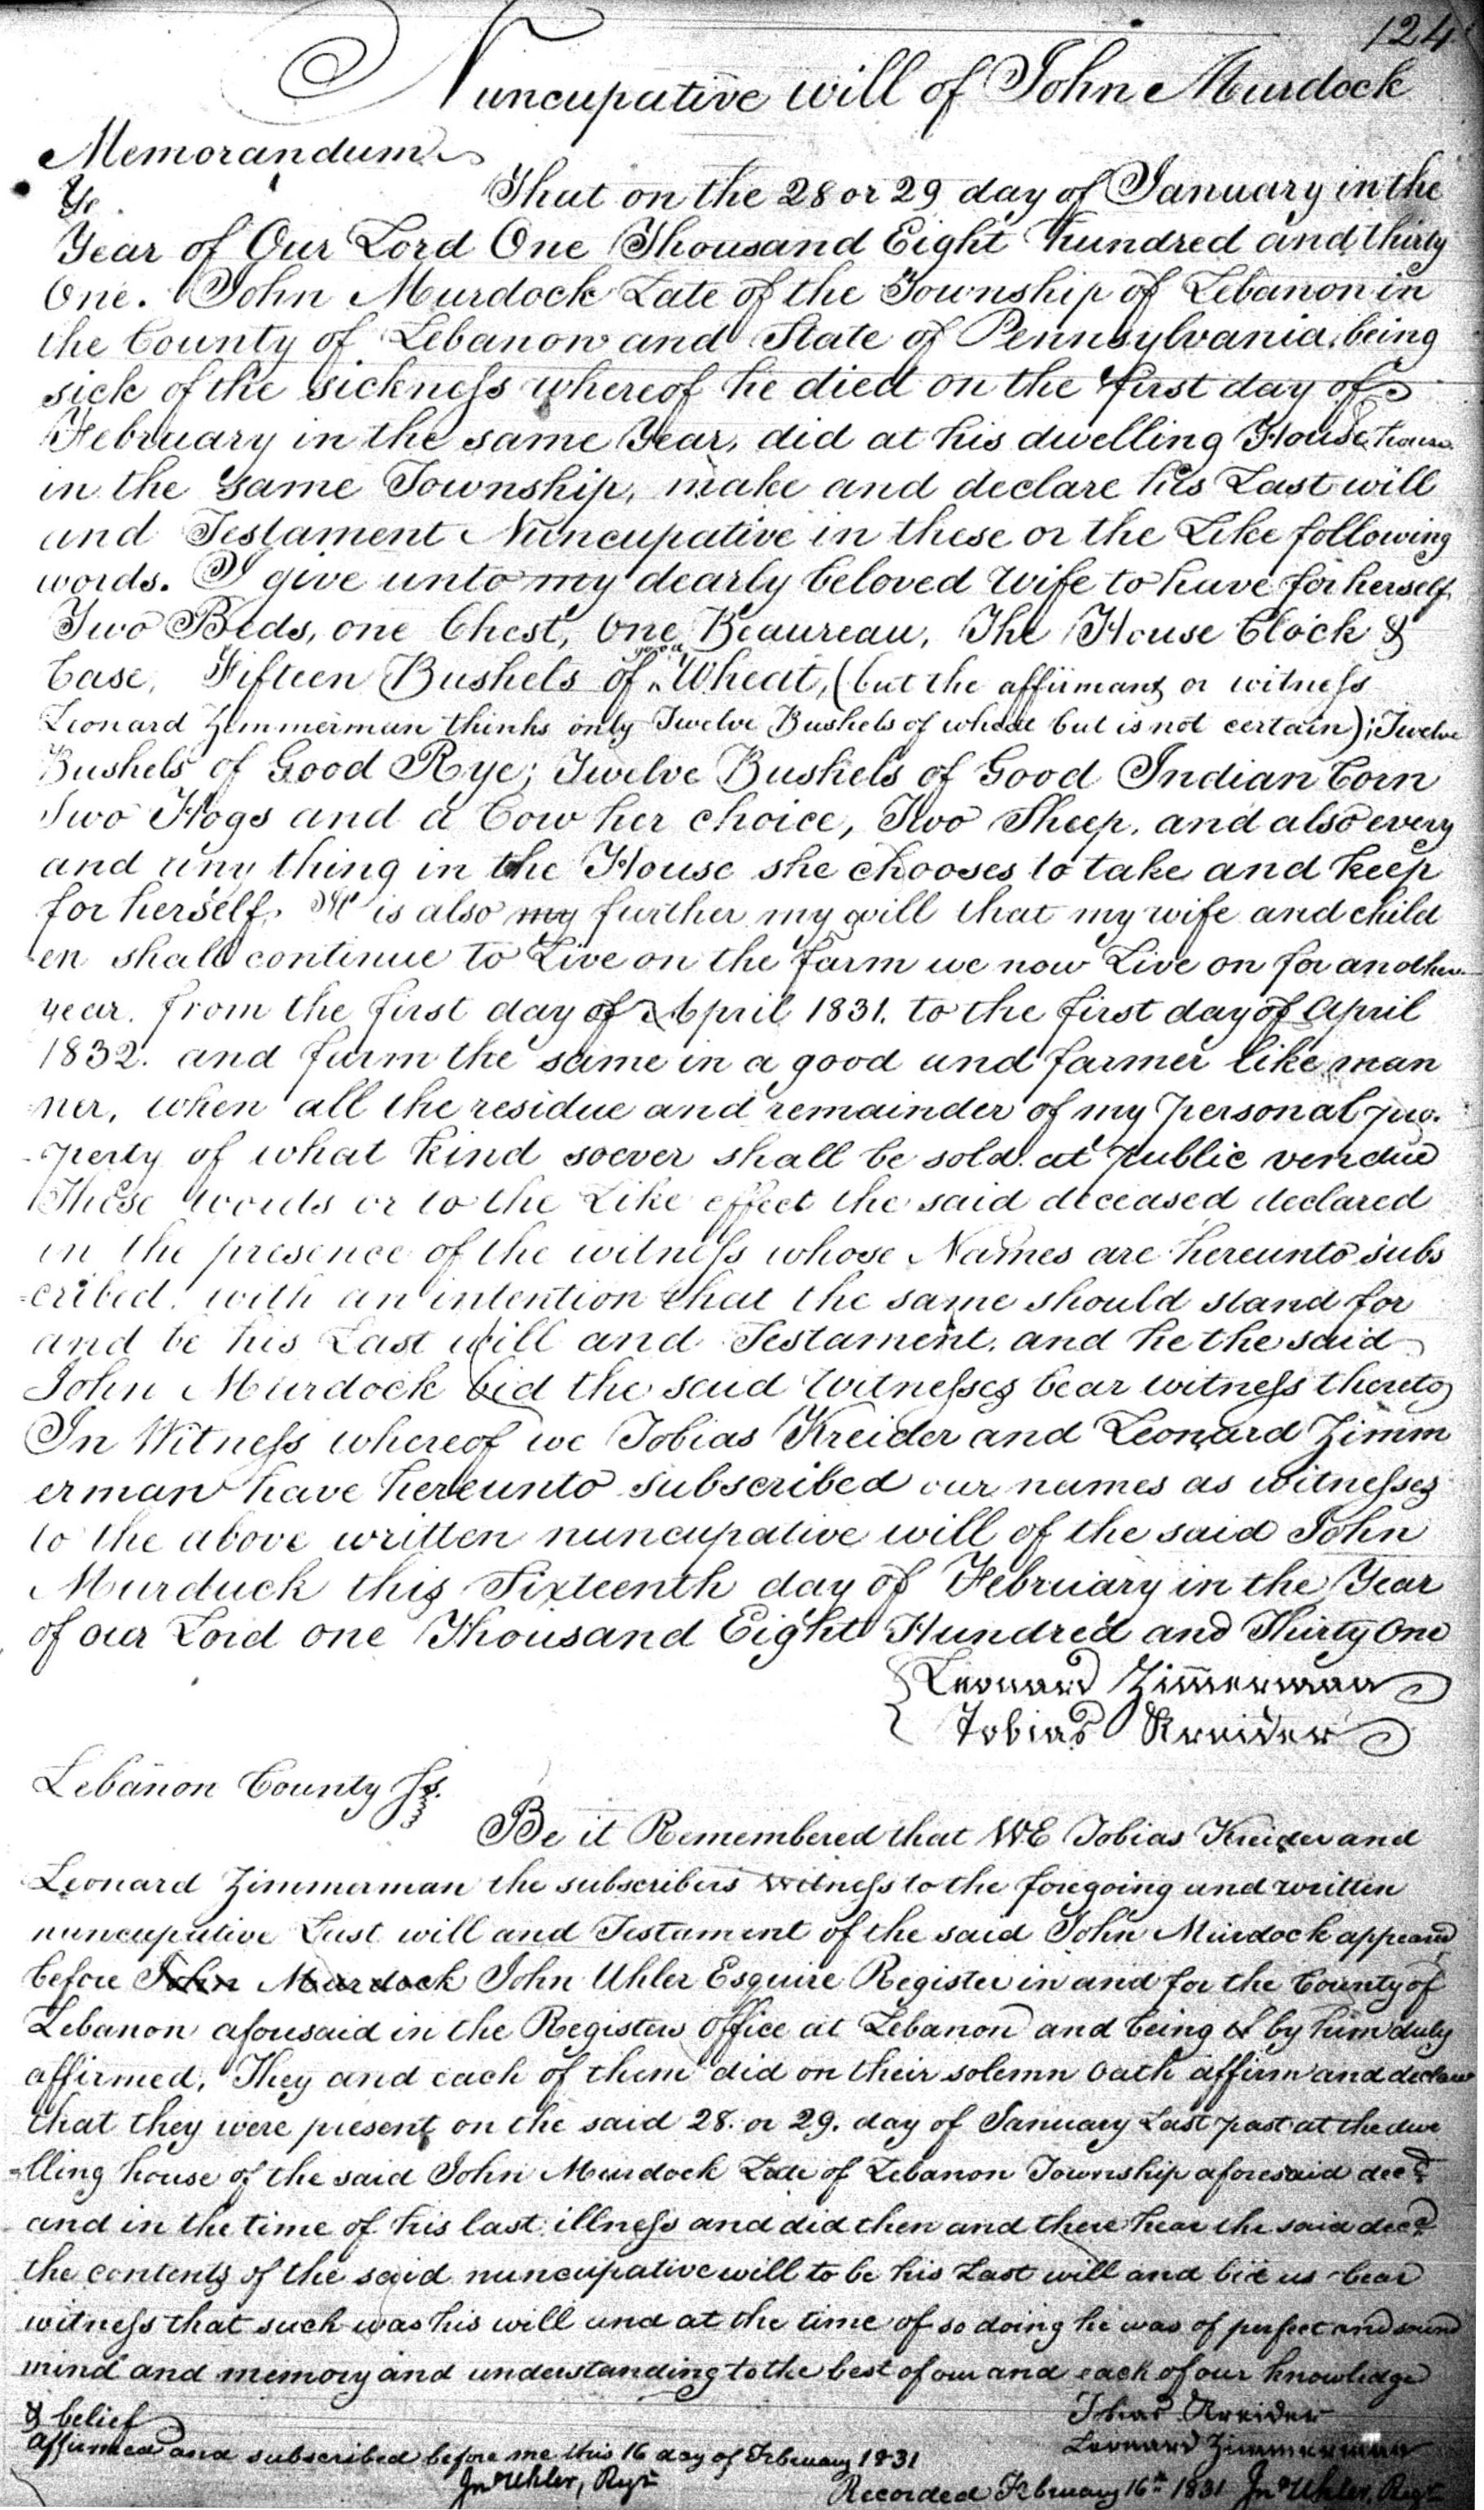 124
Nuncupative will of John Murdock
Memorandum
Ye
That on the 28 or 29 day of January in the
Year of Our Lord One Thousand Eight hundred and thirty
One. John Murdock Late of the Township of Lebanon in
the County of Lebanon and State of Pennsylvania, being
sick of the sickness whereof he died on the first day of
February in the same Year, did at his dwelling House
in the same Township, make and declare his Last will
and Testament Nuncupative in these or the Like following
words. I give unto my dearly beloved wife to have for herself
Two Beds, one Chest, One Beaureau, The House Clock &
Case, Fifteen Bushels of good Wheat, (but the affirmant or witness
Leonard Zimmerman thinks only Twelve Bushels of wheat but is not certain); Twelve
Bushels of Good Rye; Twelve Bushels of Good Indian Corn
Two Hogs and a Cow her choice, Two Sheep, and also every
and any thing in the House she chooses to take and keep
for herself. It is also my further my will that my wife and child
en shall continue to Live on the farm we now Live on for another
year. from the first day of April 1831. to the first day of April
1832. and farm the same in a good and farmer like man
ner, when all the residue and remainder of my personal pro-
-perty of what kind soever shall be sold at public vendue
These words or to the Like effect the said deceased declared
in the presence of the witness whose Names are hereunto subs
-cribed. with an intention that the same should stand for
and be his Last will and Testament. and he the said
John Murdock bid the said Witnesses bear witness thereto
In Witness whereof we Tobias Kreider and Leonard Zimm
erman have hereunto subscribed our names as witnesses
to the above written nuncupative will of the said John
Murduck this Sixteenth day of February in the Year
of our Lord one Thousand Eight Hundred and Thirty One
Leonard Zimmerman
Tobias Kreider
Lebanon County Ss.
Be it Remembered that WE Tobias Kreider and
Leonard Zimmerman the subscribers witness to the foregoing and written
nuncupative Last will and Testament of the said John Murdock appeared
before John Murdock John Uhler Esquire Register in and for the County of
Lebanon aforesaid in the Registers Office at Lebanon and being by him duly
affirmed, They and each of them did on their solemn Oath affirm and declare
that they were present on the said 28. or 29. day of January Last past at the dwe
-lling house of the said John Murdock Late of Lebanon Township aforesaid decd
and in the time of his last illness and did then and there hear the said decd
the contents of the said nuncupative will to be his Last will and bid us bear
witness that such was his will and at the time of so doing he was of perfect and sound
mind and memory and understanding to the best of our and each of our knowledge
& belief
Tobias Kreider
Leonard Zimmerman
Affirmed and subscribed before me this 16 day of February 1831
Jno Uhler, Regr
Recorded February 16th 1831 Jno Uhler, Regr